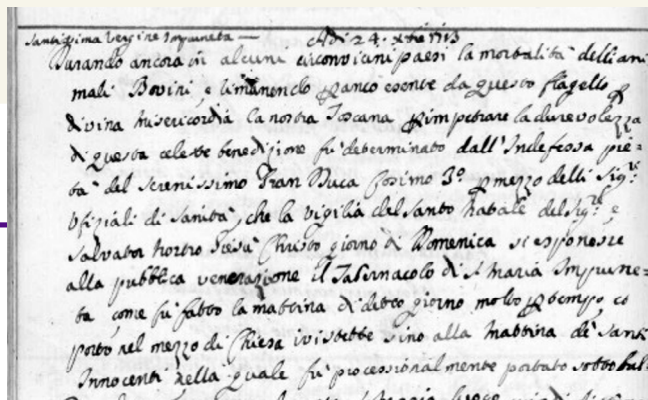 Santissima Vergine Impruneta — Adi 24. Xbre 1713
Durando ancora in alcuni circonviciani paesi la mortalità delli ani
mali Bovini, e rimanendo p anco esente da questo flagello p
divina misericordia la nostra Toscana p impetrare la durevolezza
di questa celeste benedizione fù determinato dall'Indefessa pie=
tà del Serenissimo Gran Duca Cosimo 3º p mezzo delli Sigri
Ufiziali di Sanità, che la vigilia del Santo Natale del Sigre e
Salvator nostro Giesù Christo giorno di Domenica si esponesse
alla pubblica venerazione il Tabernacolo di S Maria Imprune=
ta come fù fatto la mattina di detto giorno molto p tempo, co
posto nel mezzo di Chiesa vi stette sino alla mattina de' Santi
Innocenti nella quale fù processionalmente portato sotto bal=